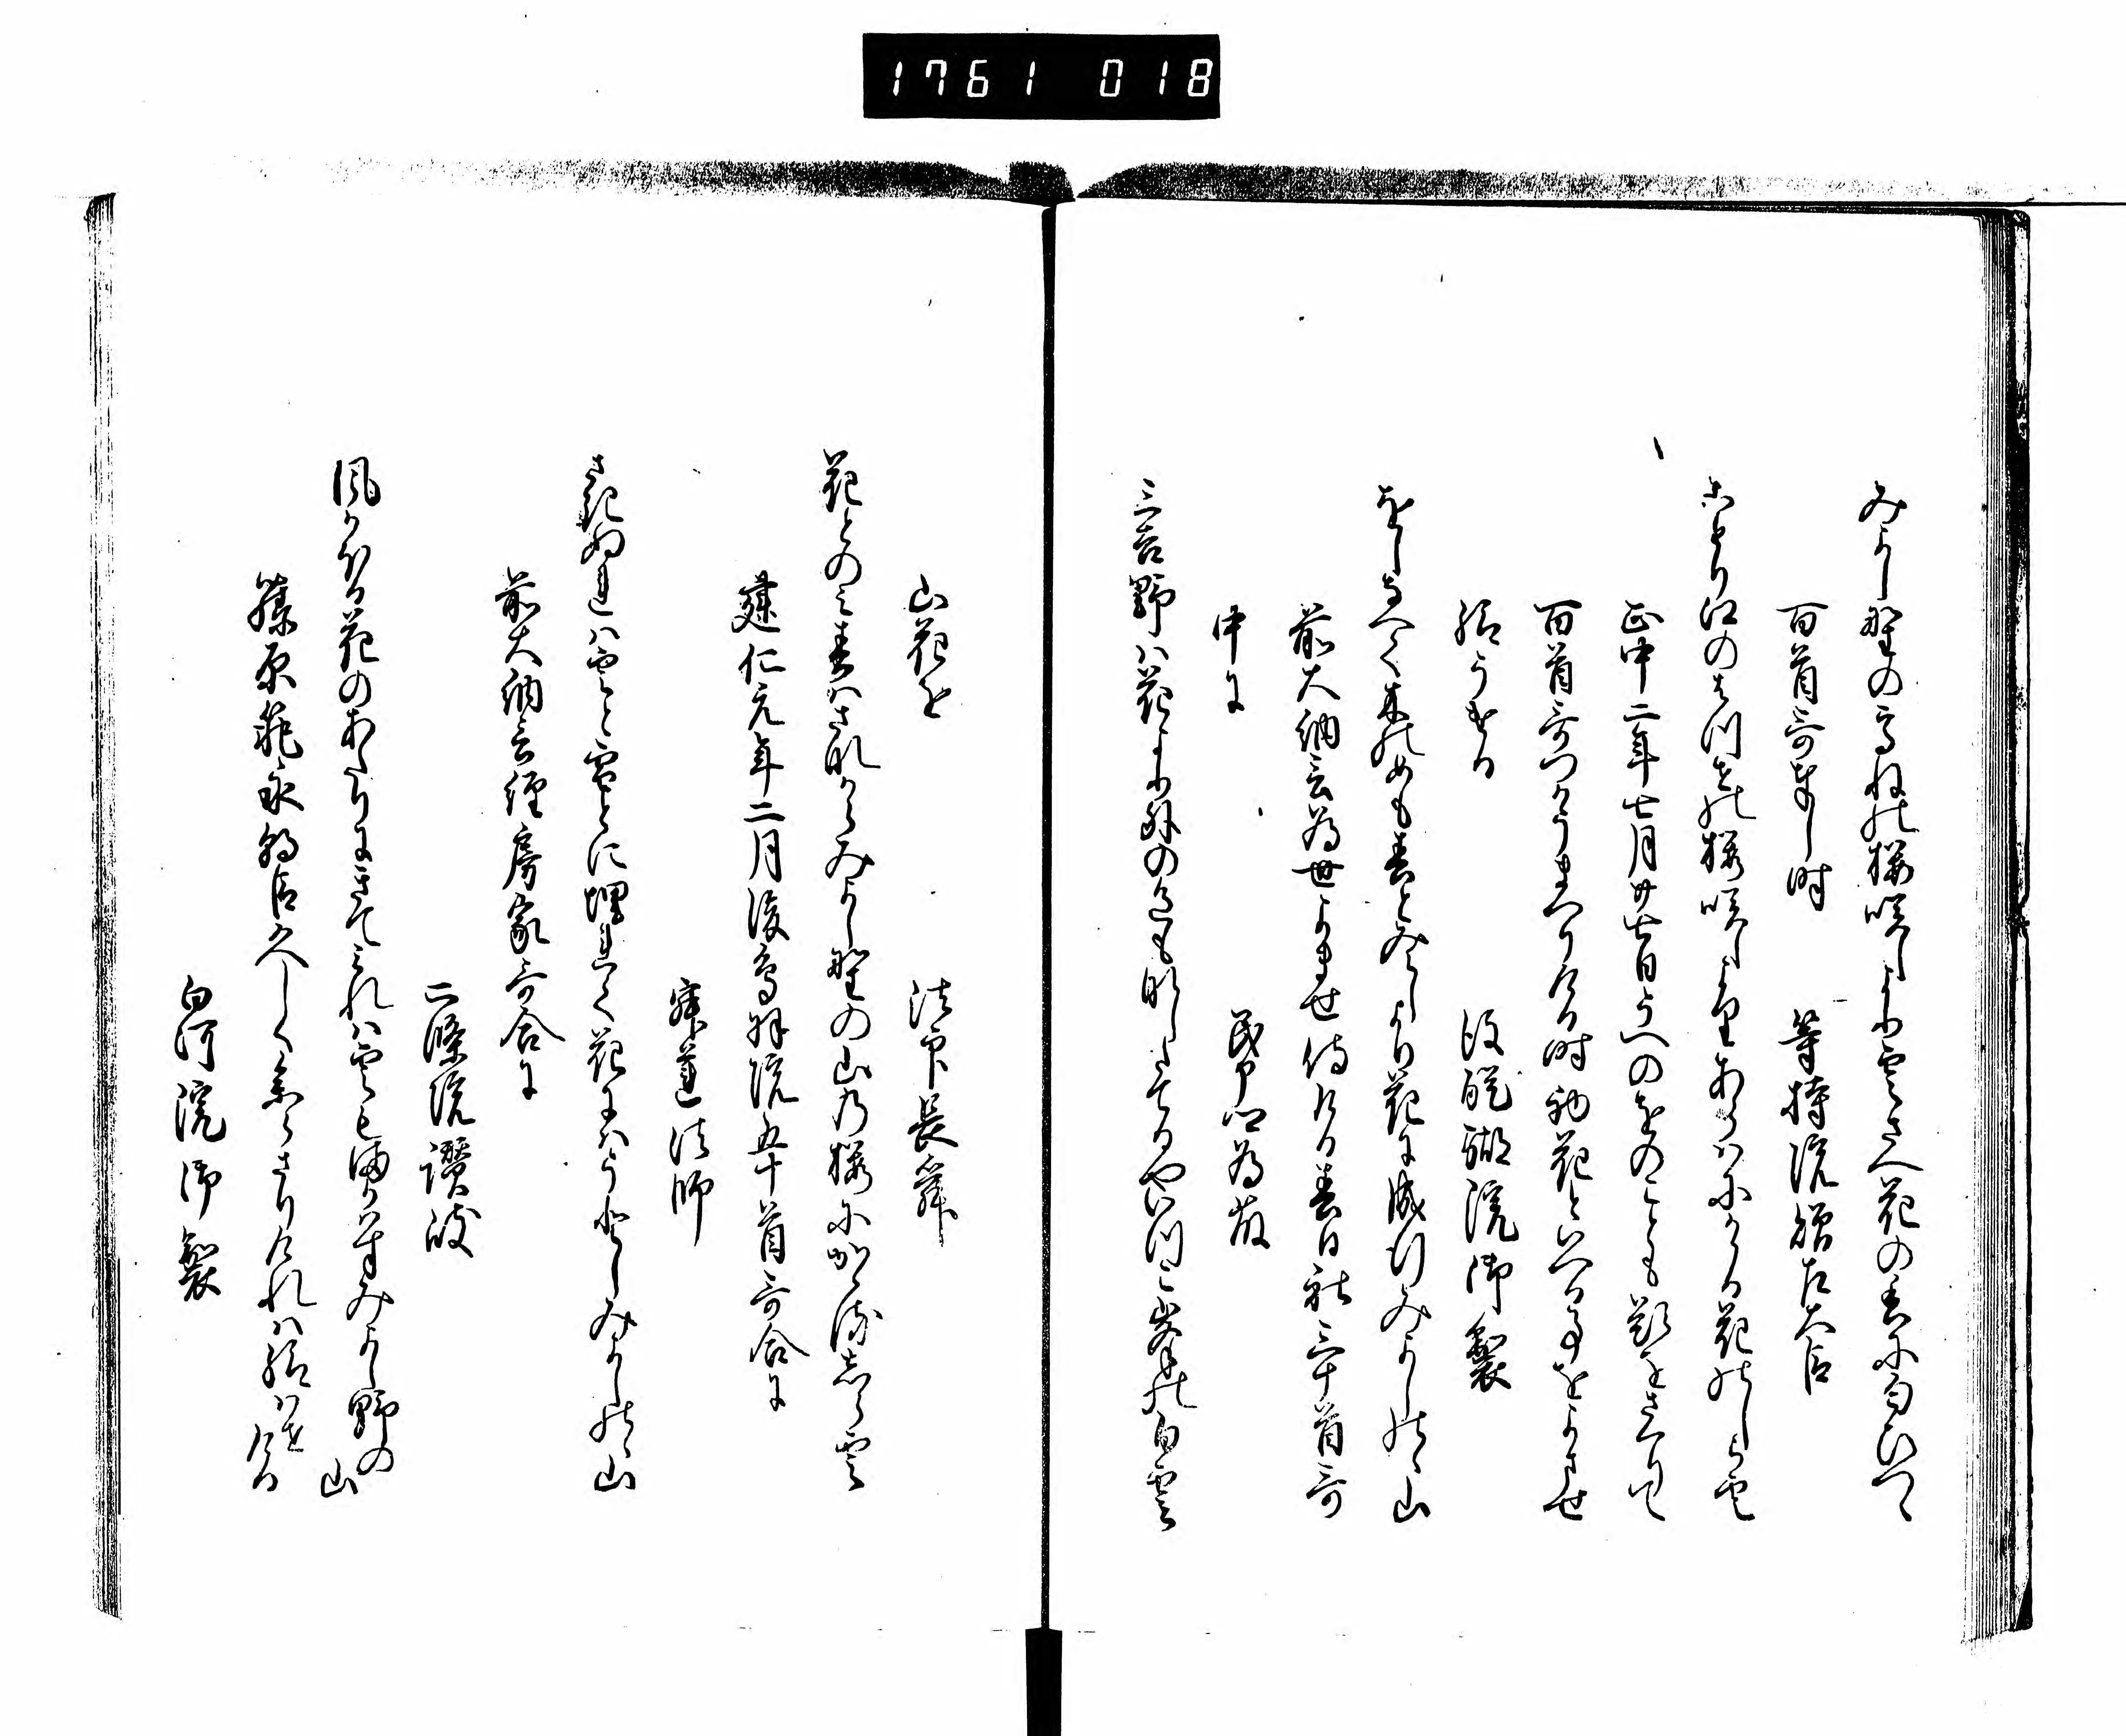 1761 018
みよし野の高ねの桜咲しより雲さへ花の色に匂ひつゝ
百首哥奉し時　等持院贈左大臣
かつらきの
正中二年七月廿七日うへのをのことも題をさくりて
百首哥つかうまつりける時初花といへる事をよませ
給うける　後醍醐院御製
をしなへて木のめも春とみえしより花に成行みよしのゝ山
前大納言為世よませ侍ける春日社三十首哥
中に　民部卿為藤
三吉野は花より外の色も なしたてるやいつこ峯の白雲
山花を　法印長舜
花とのみ春はさなからみよし野の山の桜にかゝるしら雲
建仁元年二月後鳥羽院五十首哥合に
寂蓮法師
さきぬれは雲と雪とに埋れて花にはうとしみよしのゝ山
前大納言経房家哥合に
二条院讃岐
風かほる花のあたりにきてみれは雲もまかはすみよし野の山
藤原範永朝臣久しくまいらさりけれは給はせける
白河院御製